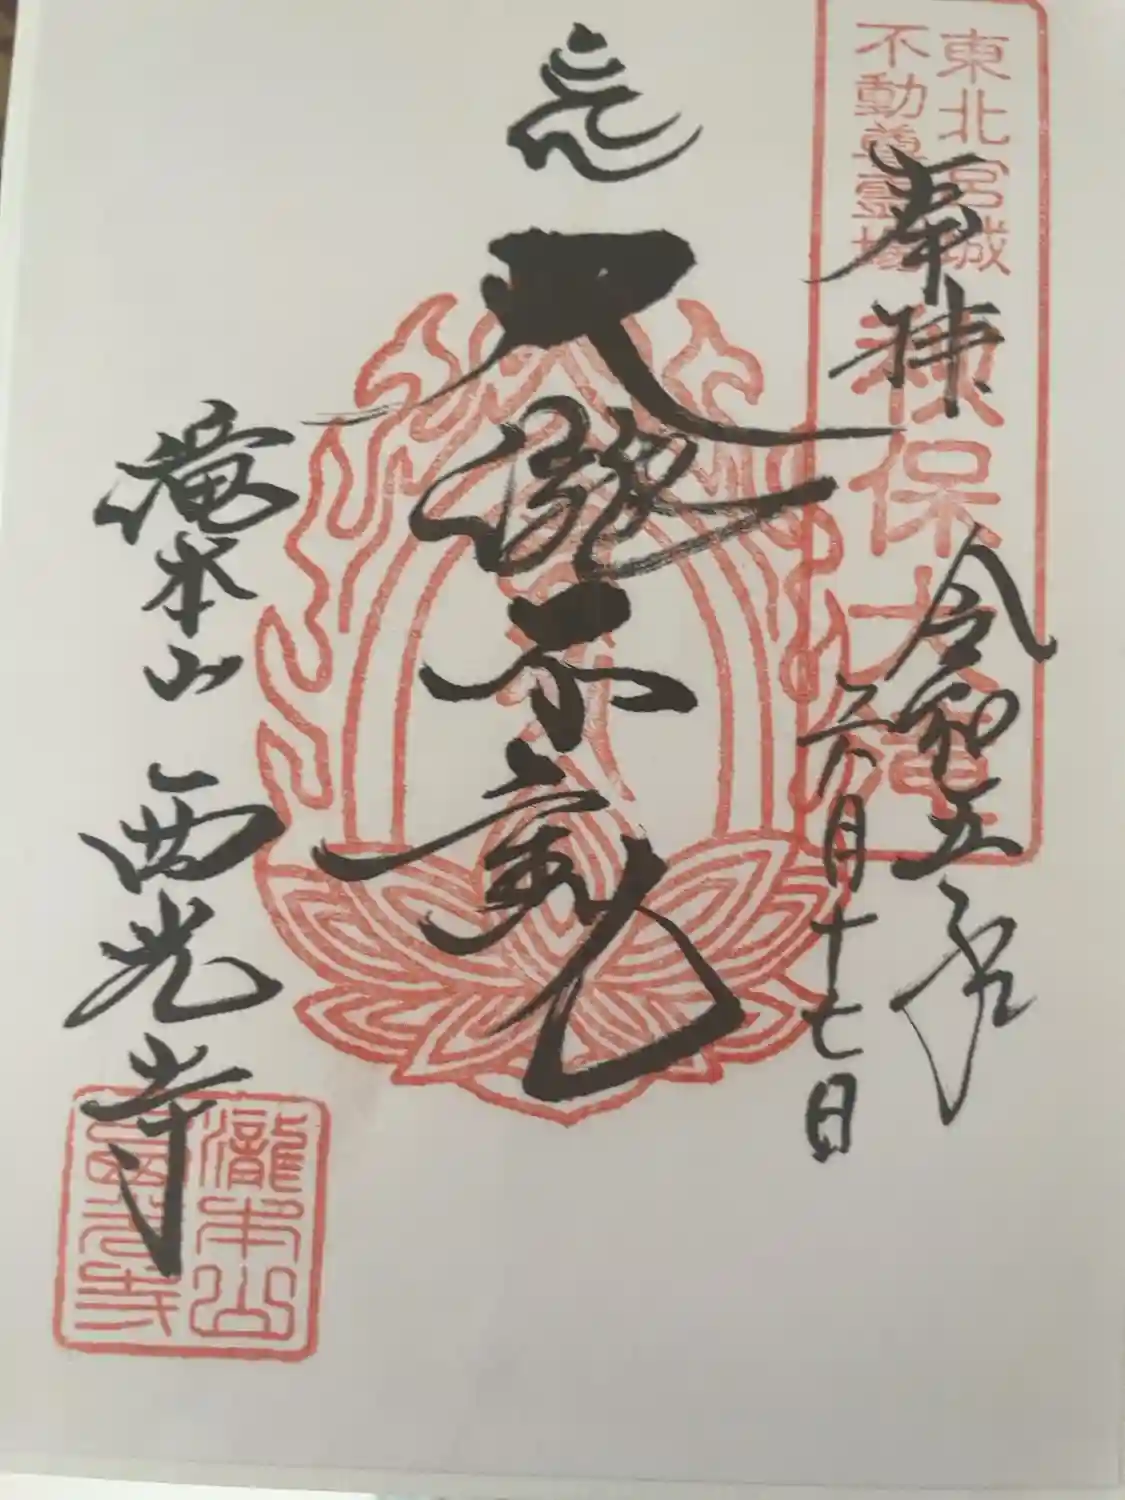 東北宮城
不動尊霊場
秋保大滝
奉拝
令和五年
六月十七日
大瀧不動
滝本山 西光寺
瀧本山
西光寺